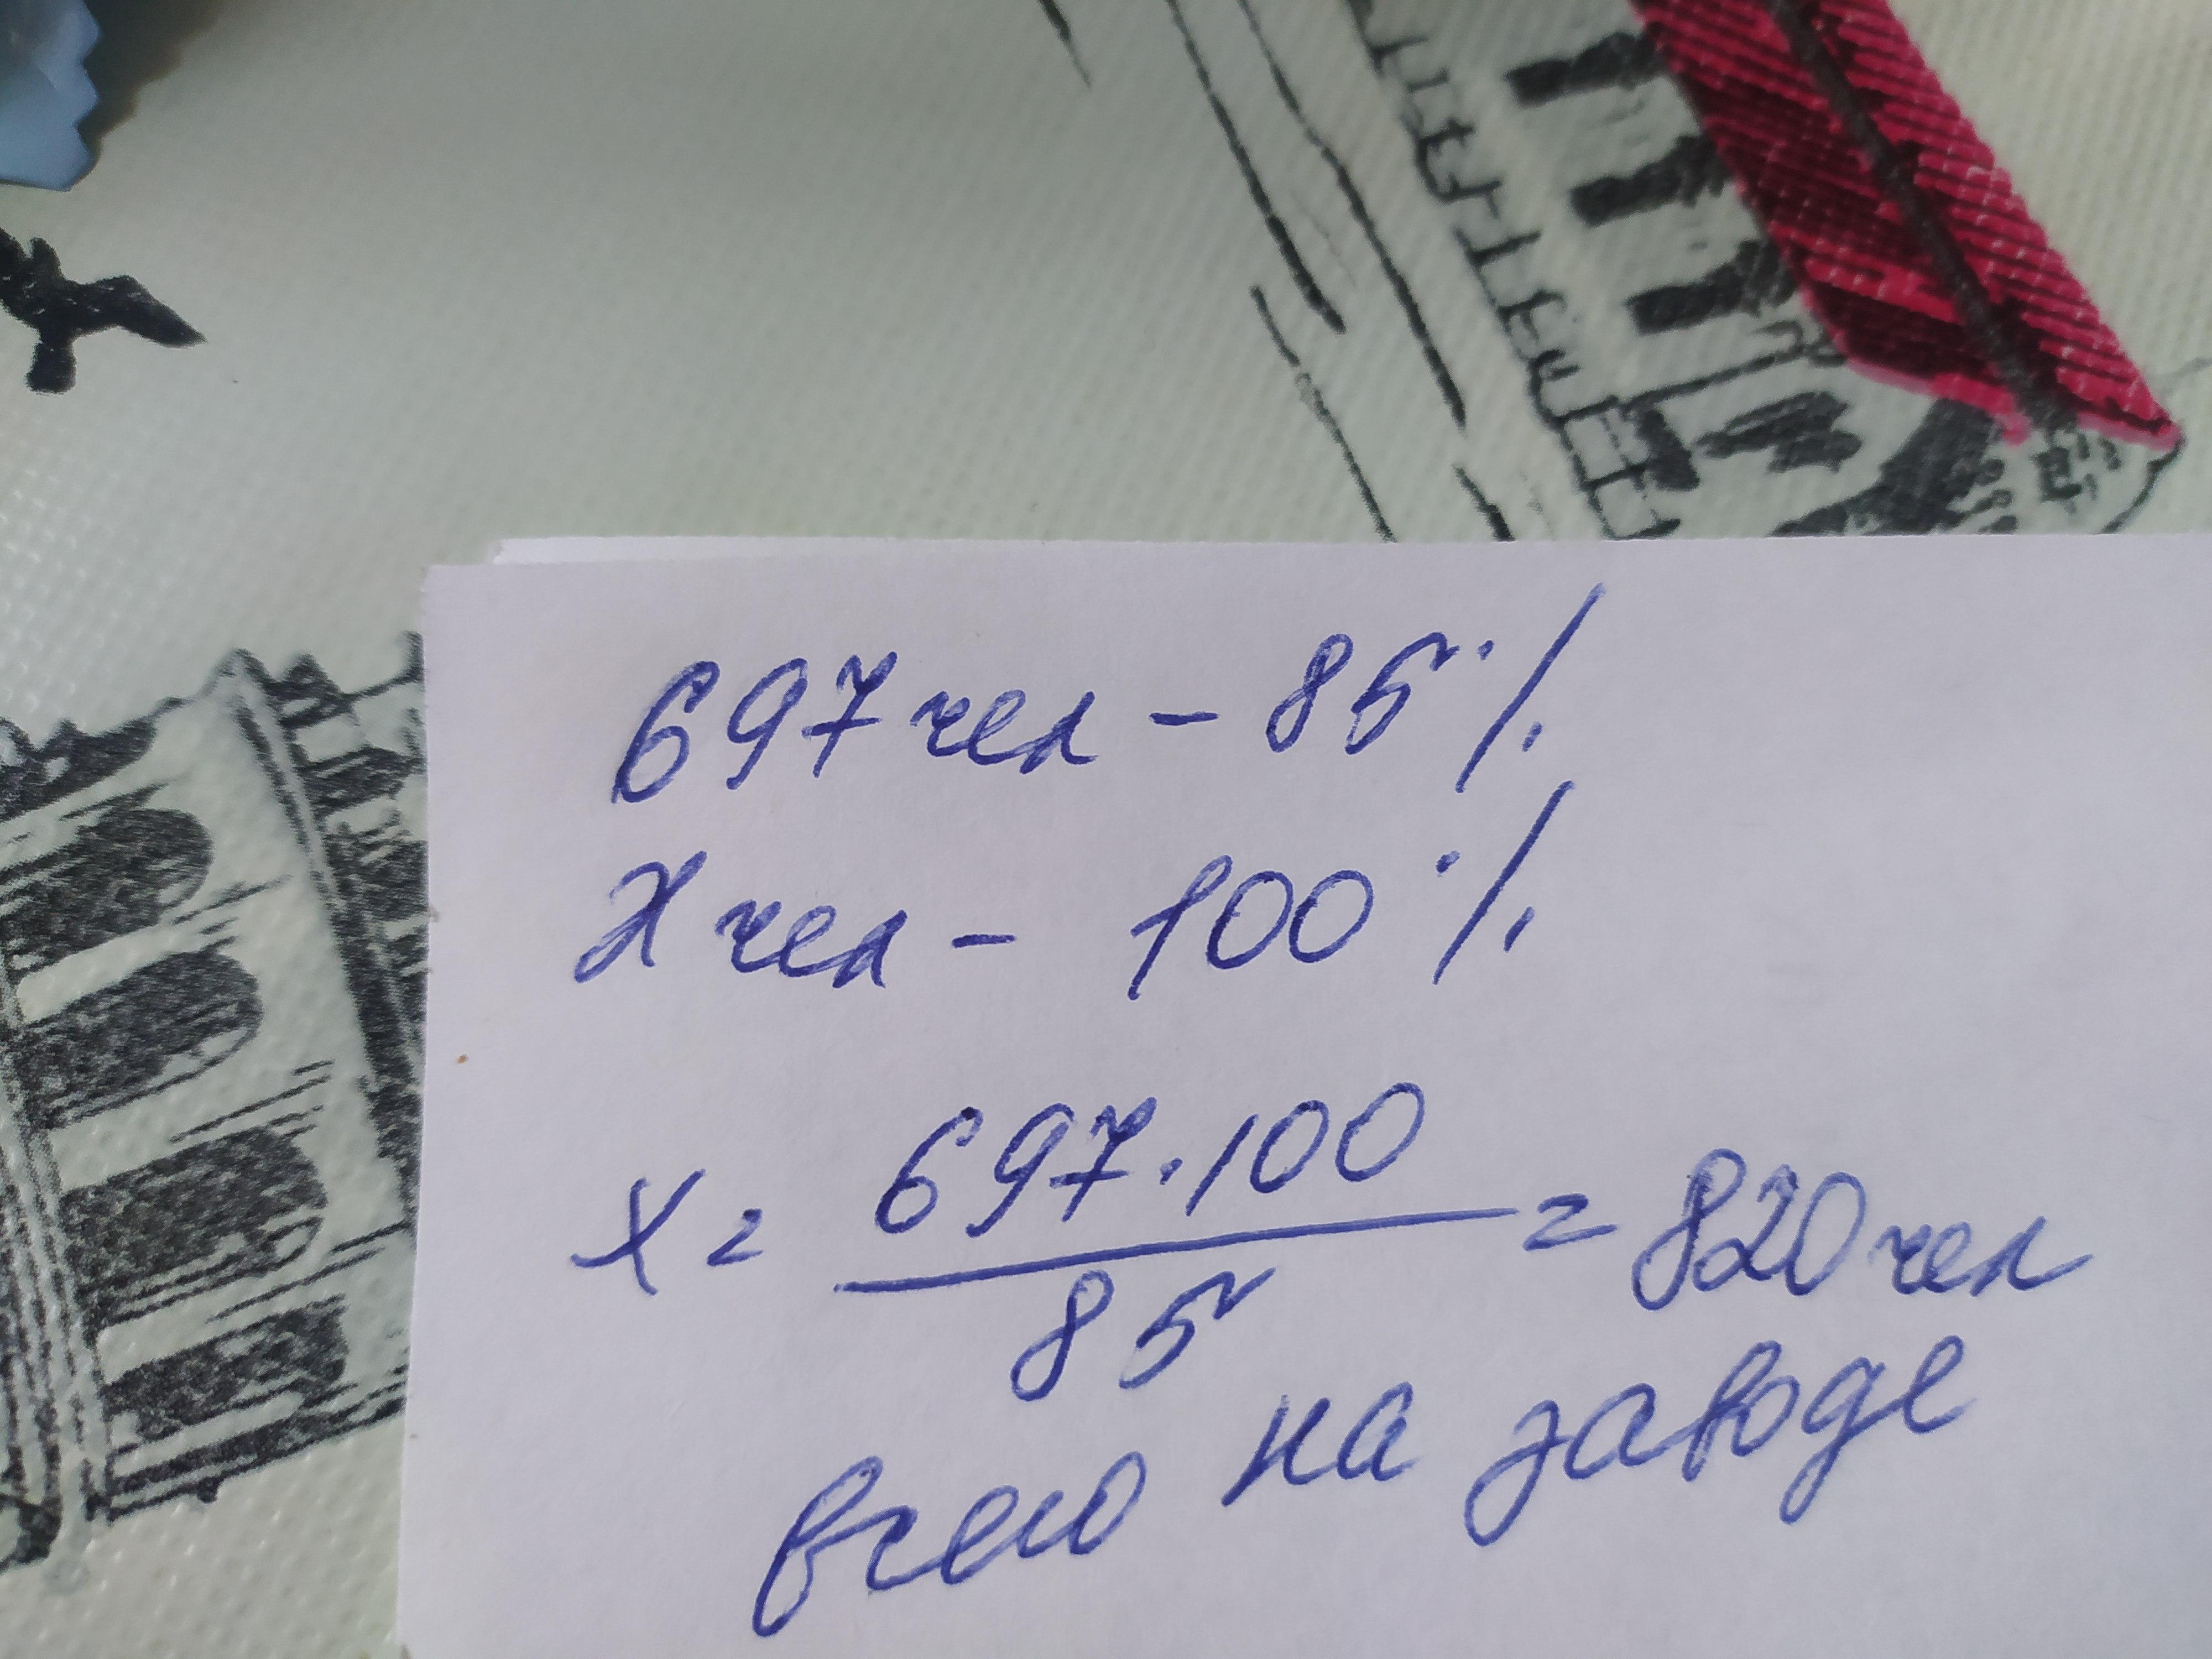 697 чел - 85%
X чел - 100%
x = 697·100 / 85 = 820 чел
всего на заводе